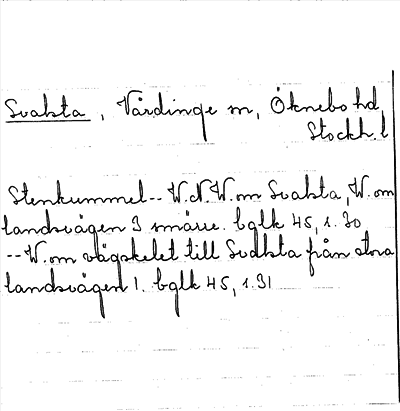 Svalsta, Vårdinge sn, Öknebo hd,
Stockh. l
Stenkummel-- W.N.W. om Svalsta, W. om
landsvägen 3 smärre. bglk 45, 1.30
--W. om vägskelet till Svalsta från stora
landsvägen 1. bglk 45, 1.31